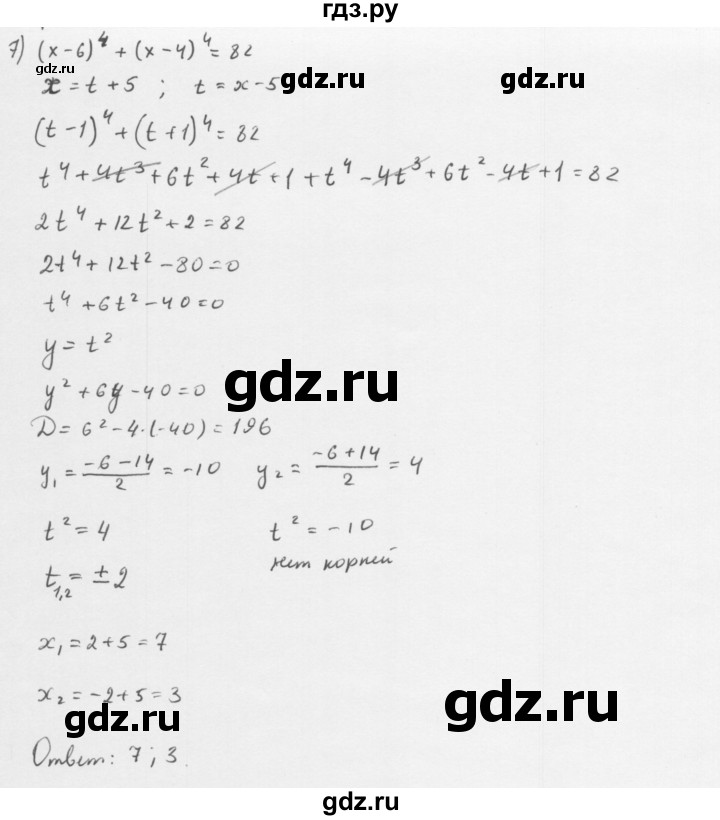 гдз.ру
7) (x-6)⁴ + (x-4)⁴ = 82
gdz.ru
x = t + 5 ; t = x - 5 gdz.ru
(t-1)⁴ + (t+1)⁴ = 82
t⁴ + 4t³ + 6t² + 4t + 1 + t⁴ - 4t³ + 6t² - 4t + 1 = 82
2t⁴ + 12t² + 2 = 82
2t⁴ + 12t² - 80 = 0
t⁴ + 6t² - 40 = 0
y = t²
gdz.ru
y² + 6y - 40 = 0
D = 6² - 4·(-40) = 196
y₁ = (-6-14)/2 = -10 y₂ = (-6+14)/2 = 4
t² = 4 t² = -10
t₁,₂ = ±2 нет корней
x₁ = 2 + 5 = 7
x₂ = -2 + 5 = 3
gdz.ru gdz.ru
Ответ: 7 ; 3.
gdz.ru